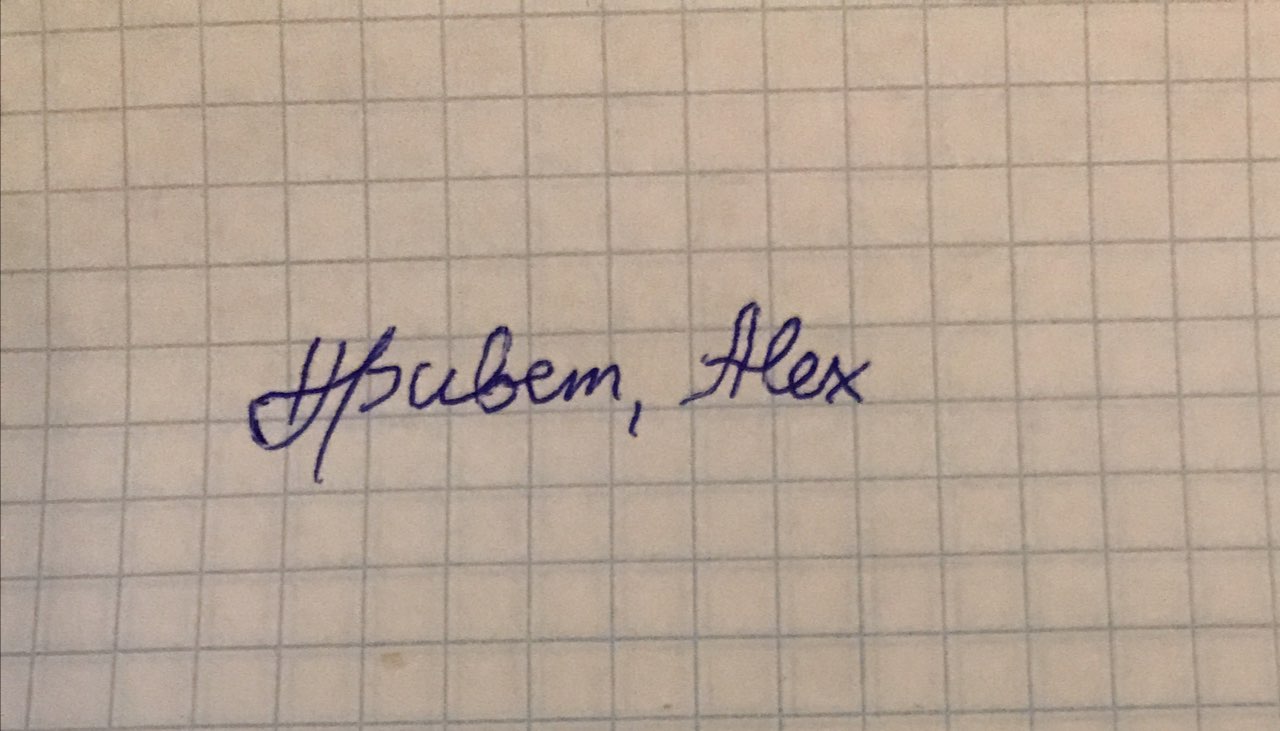 Привет, Alex